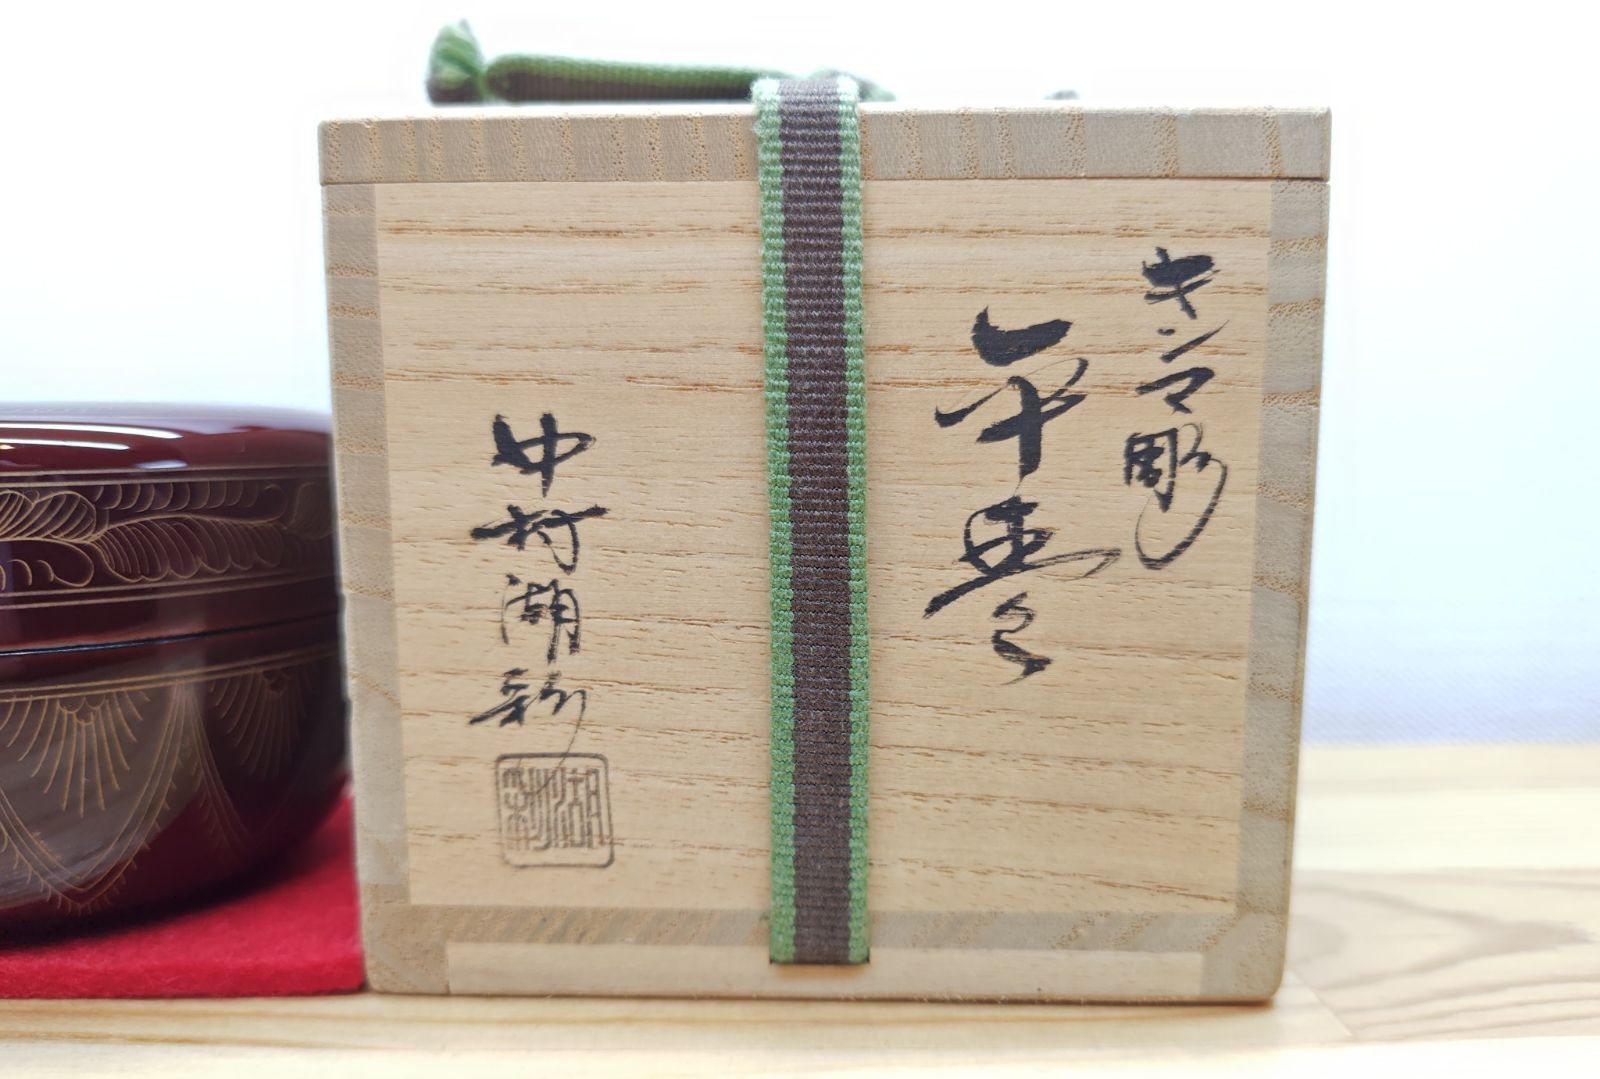 キンマ彫
平棗
中村湖彩
湖彩